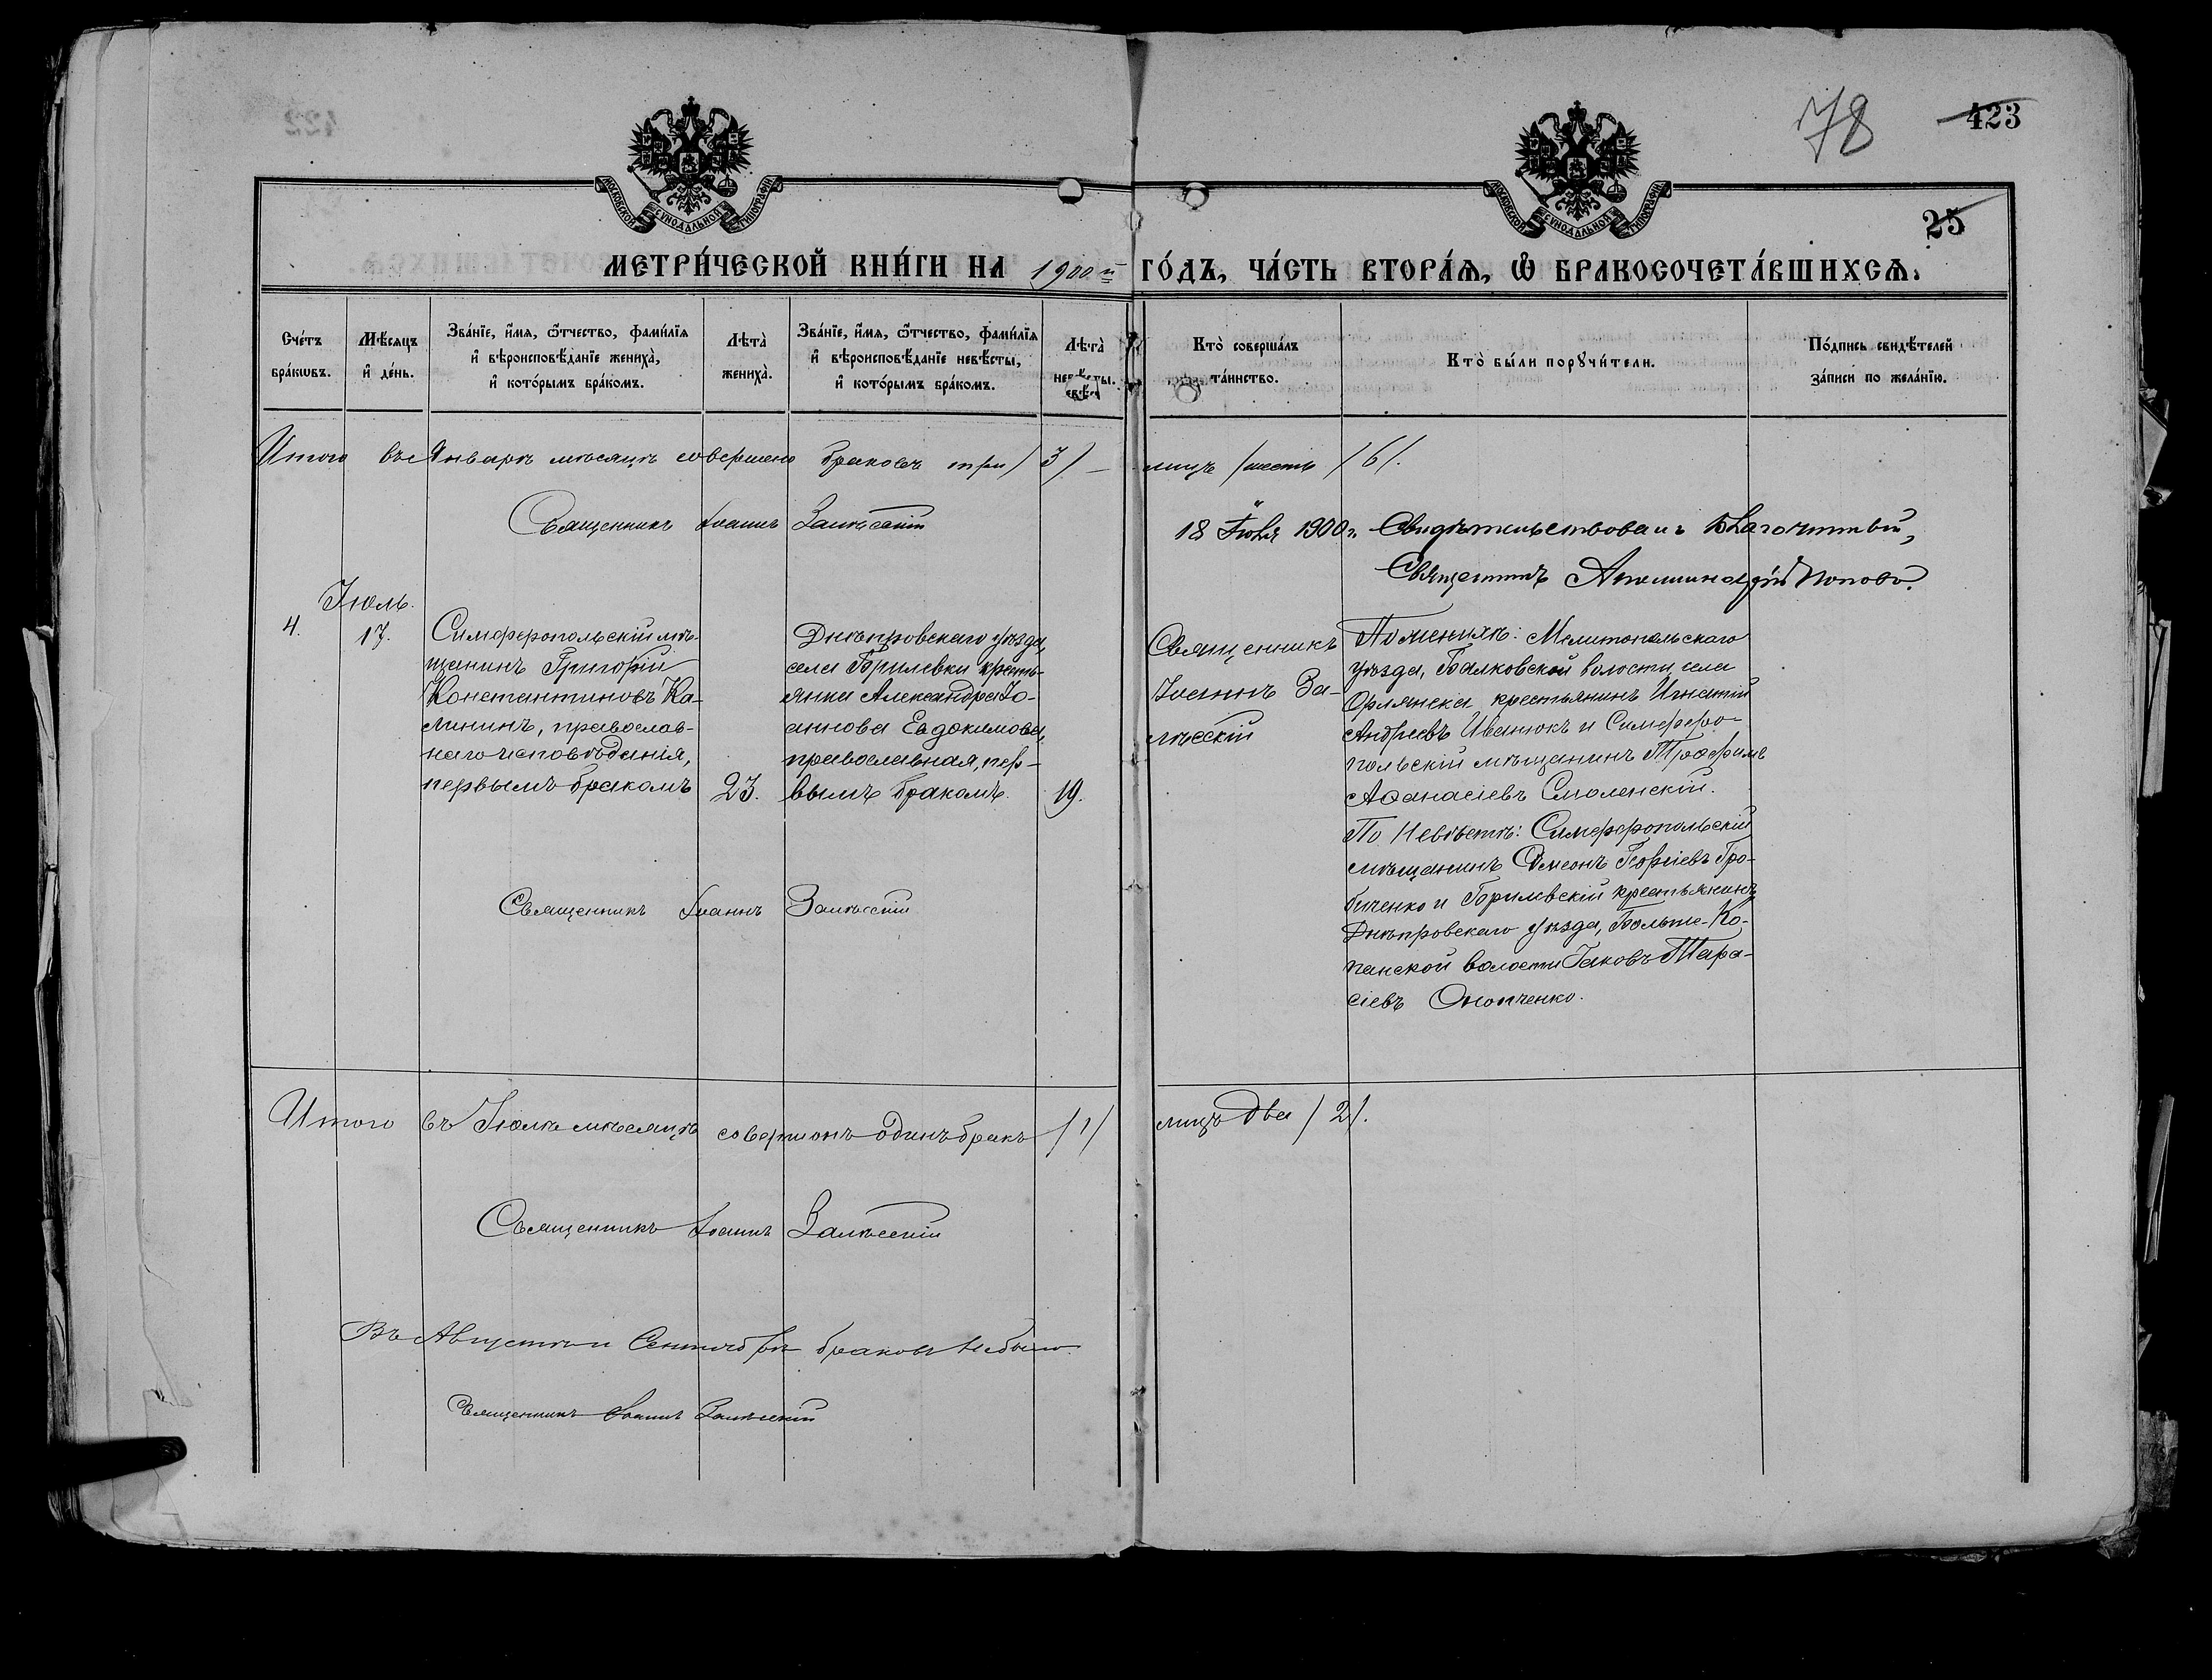 78
423
422
МОСКОВСКОЙ СѴНОДАЛЬНОЙ ТИПОГРАФІИ
МОСКОВСКОЙ СѴНОДАЛЬНОЙ ТИПОГРАФІИ
25
МЕТРИ́ЧЕСКОЙ КНИ́ГИ НА 1900й ГО́ДЪ, ЧА́СТЬ ВТОРА́Ѧ, Ѽ БРАКОСОЧЕТА́ВШИХСѦ.
Сче́тъ бра́кѡвъ.
Мѣ́сяцъ и҆ де́нь.
Зва́нїе, и҆́мѧ, ѻ҆́тчество, фами́лїѧ и҆ вѣроисповѣ́данїе жениха̀, и҆ кото́рымъ бра́комъ.
Лѣта̀ жениха̀.
Зва́нїе, и҆́мѧ, ѻ҆́тчество, фами́лїѧ и҆ вѣроисповѣ́данїе невѣ́сты, и҆ кото́рымъ бра́комъ.
Лѣта̀ невѣ́сты.
Кто̀ соверша́лъ та́инство.
Кто̀ бы́ли порꙋчи́тели.
По́дпись свидѣ́телей за́писи по жела́нїю.
Итого въ Январѣ мѣсяцѣ совершено браковъ три /3/ – лицъ /шесть /6/.
Священникъ Іоаннъ Залѣсскій
18 Іюля 1900 г. Свидѣтельствовалъ Благочинный,
Священникъ Аполлинарій Поповъ.
Іюль.
4.
17.
Симферопольскій мѣ-
щанинъ Григорій
Константиновъ Ка-
лининъ, православ-
наго исповѣданія,
первымъ бракомъ
23.
Днѣпровскаго уѣзда,
села Брилевки кресть-
янка Александра Іо-
аннова Евдокимова,
православная, пер-
вымъ бракомъ.
19.
Священникъ
Іоаннъ За-
лѣсскій
По женихѣ: Мелитопольскаго
уѣзда, Балковской волости села
Орлянска крестьянинъ Игнатій
Андреевъ Иванюкъ и Симферо-
польскій мѣщанинъ Трофимъ
Аѳанасіевъ Смоленскій.
По Невѣстѣ: Симферопольскій
мѣщанинъ Симеонъ Георгіевъ Гро-
биченко и Брилевскій крестьянинъ
Днѣпровскаго уѣзда, Больше-Ко-
панской волости Іаковъ Тара-
сіевъ Онопченко.
Священникъ Іоаннъ Залѣсскій
Итого въ Іюлѣ мѣсяцѣ совершонъ одинъ бракъ /1/ лицъ два /2/.
Священникъ Іоаннъ Залѣсскій
Въ Августѣ и Сентябрѣ браковъ не было.
Священникъ Іоаннъ Залѣсскій